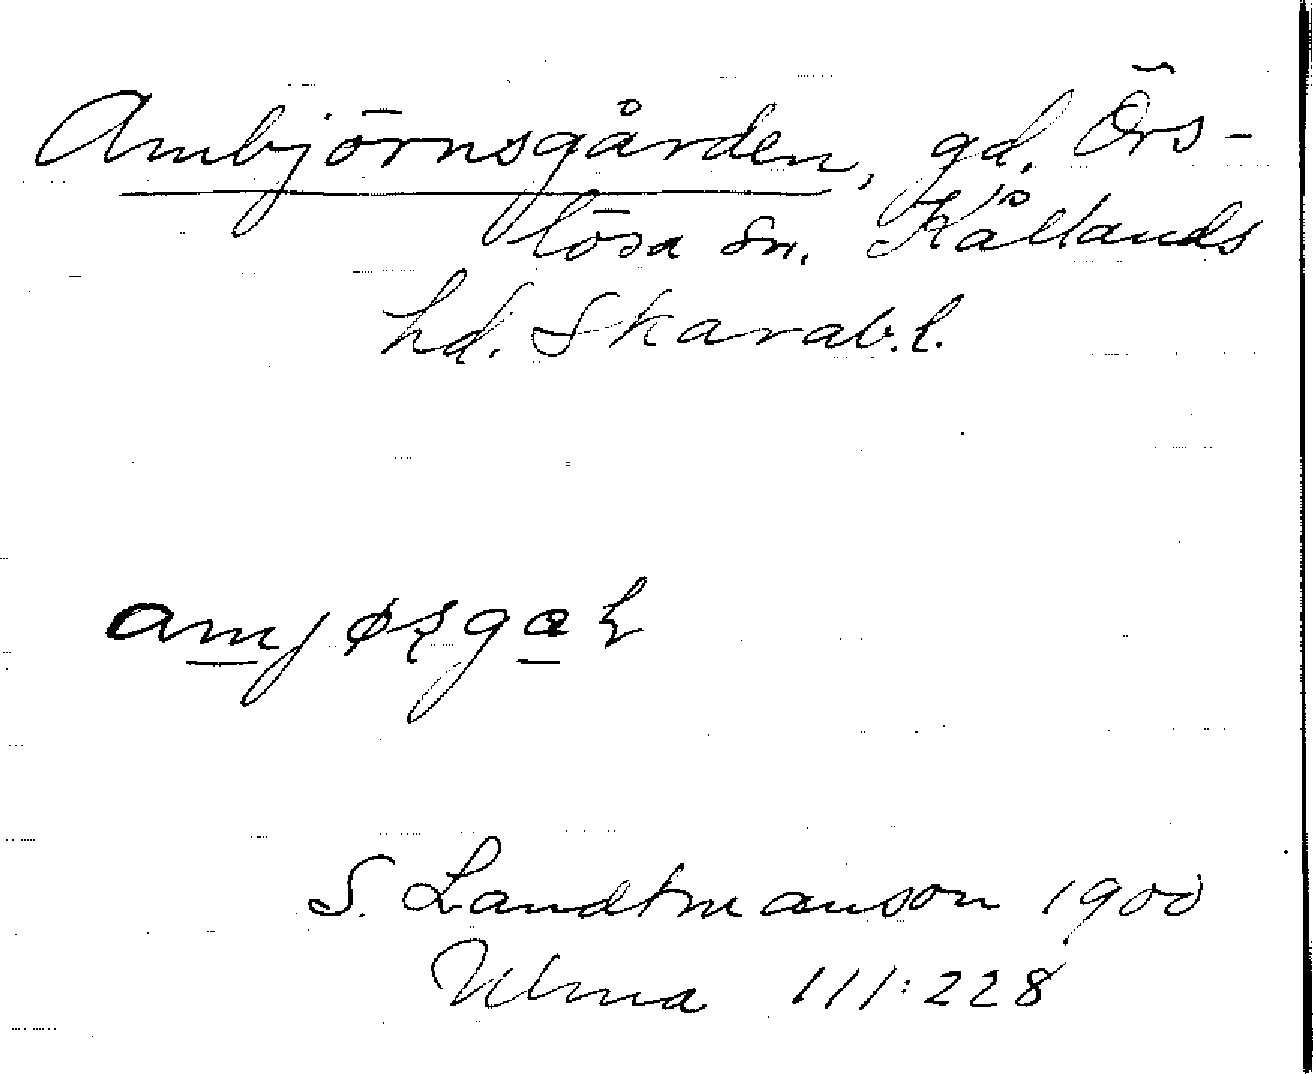 Ambjörnsgården, gd. Örs-
lösa sn. Kållands
hd. Skarab.l.
S. Landtmanson 1900
Ulma 111:228